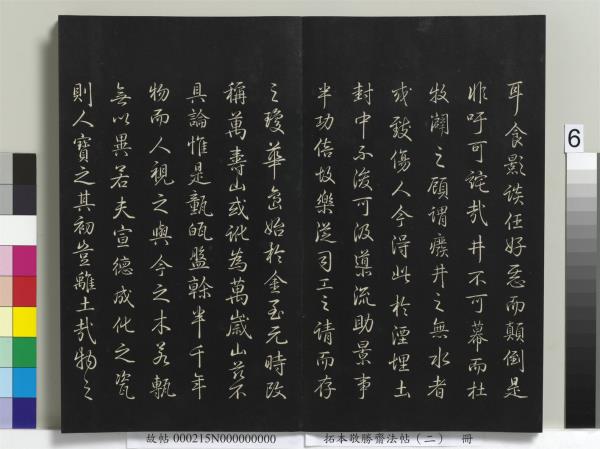 耳食影談任好惡而顛倒是
非吁可詫哉井不可幕而杜
牧闌之顧謂癈井之無水者
或致傷人今得此於湮埋土
封中不浚可汲藻流助景事
半功倍故樂從司工之請而存
之瓊華島始於金至元時改
稱萬壽山或訛為萬歲山茲不
具論惟是甎㼾盤幹半千年
物而人視之與今之木石甎
無以異若夫宣德成化之瓷
則人寶之其初豈離土哉物之
6
故帖 000215N000000000
拓本敬勝齋法帖（二） 冊